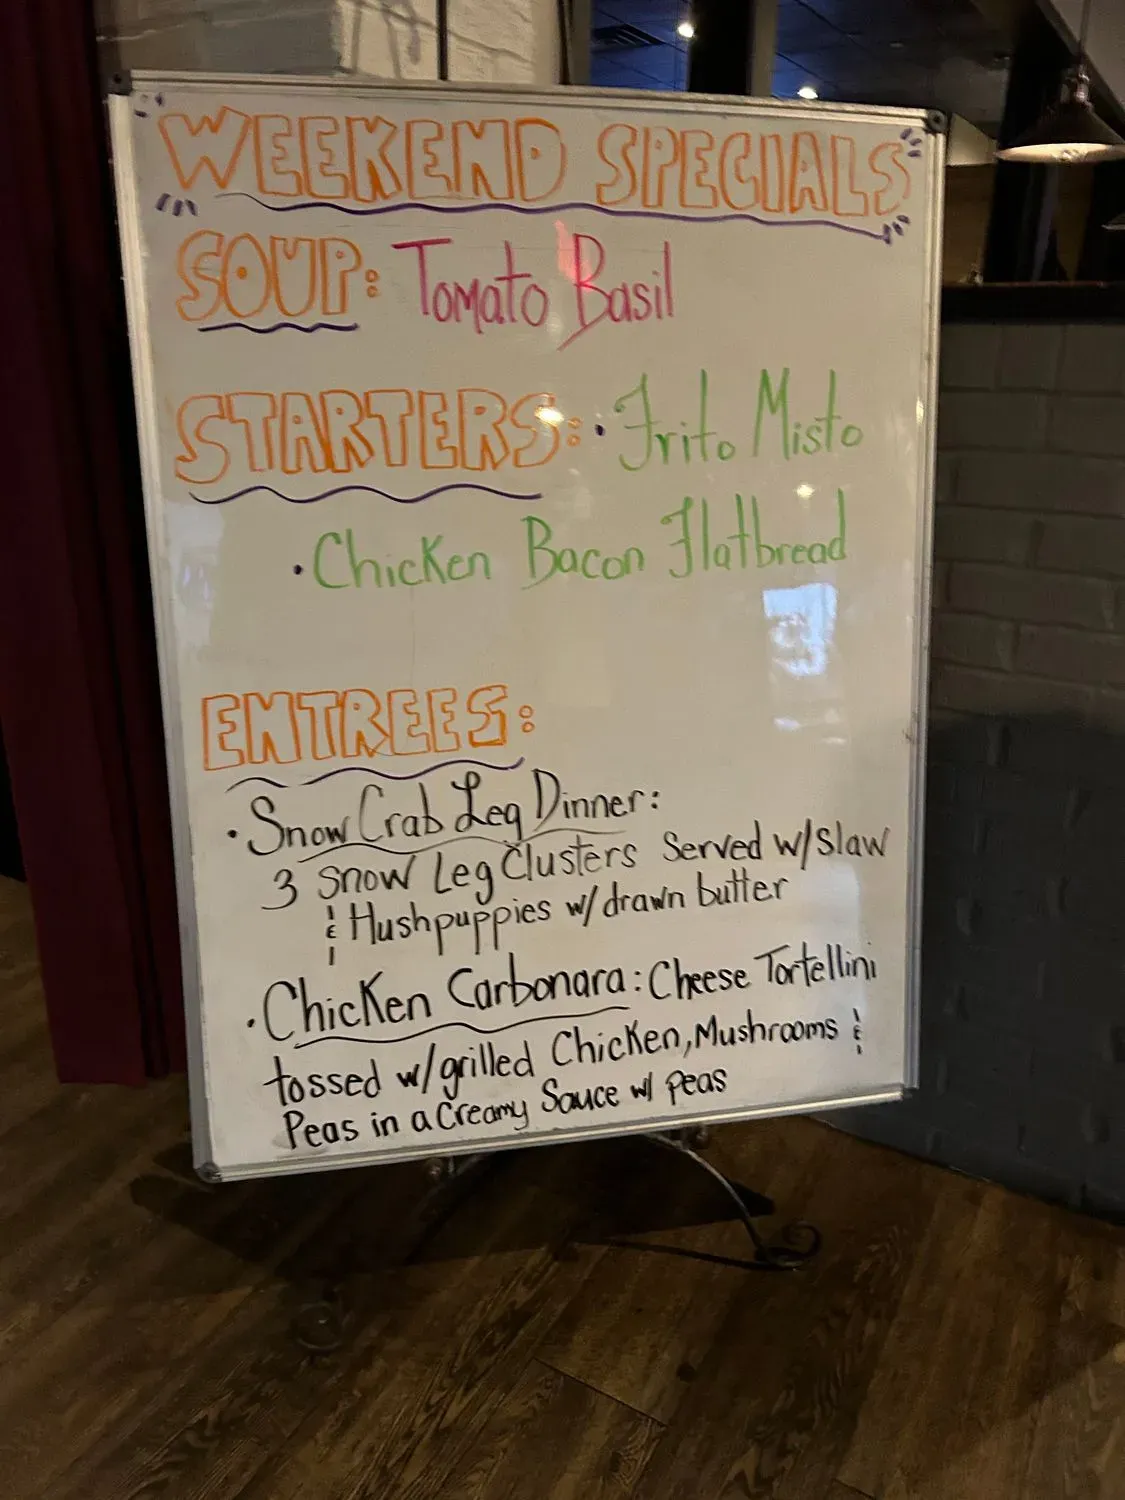 WEEKEND SPECIALS
SOUP: Tomato Basil
STARTERS: • Frito Misto
• Chicken Bacon Flatbread
ENTREES:
• Snow Crab Leg Dinner:
3 Snow Leg Clusters Served w/ Slaw
& Hushpuppies w/ drawn butter
• Chicken Carbonara: Cheese Tortellini
tossed w/ grilled Chicken, Mushrooms &
Peas in a Creamy Sauce w/ Peas